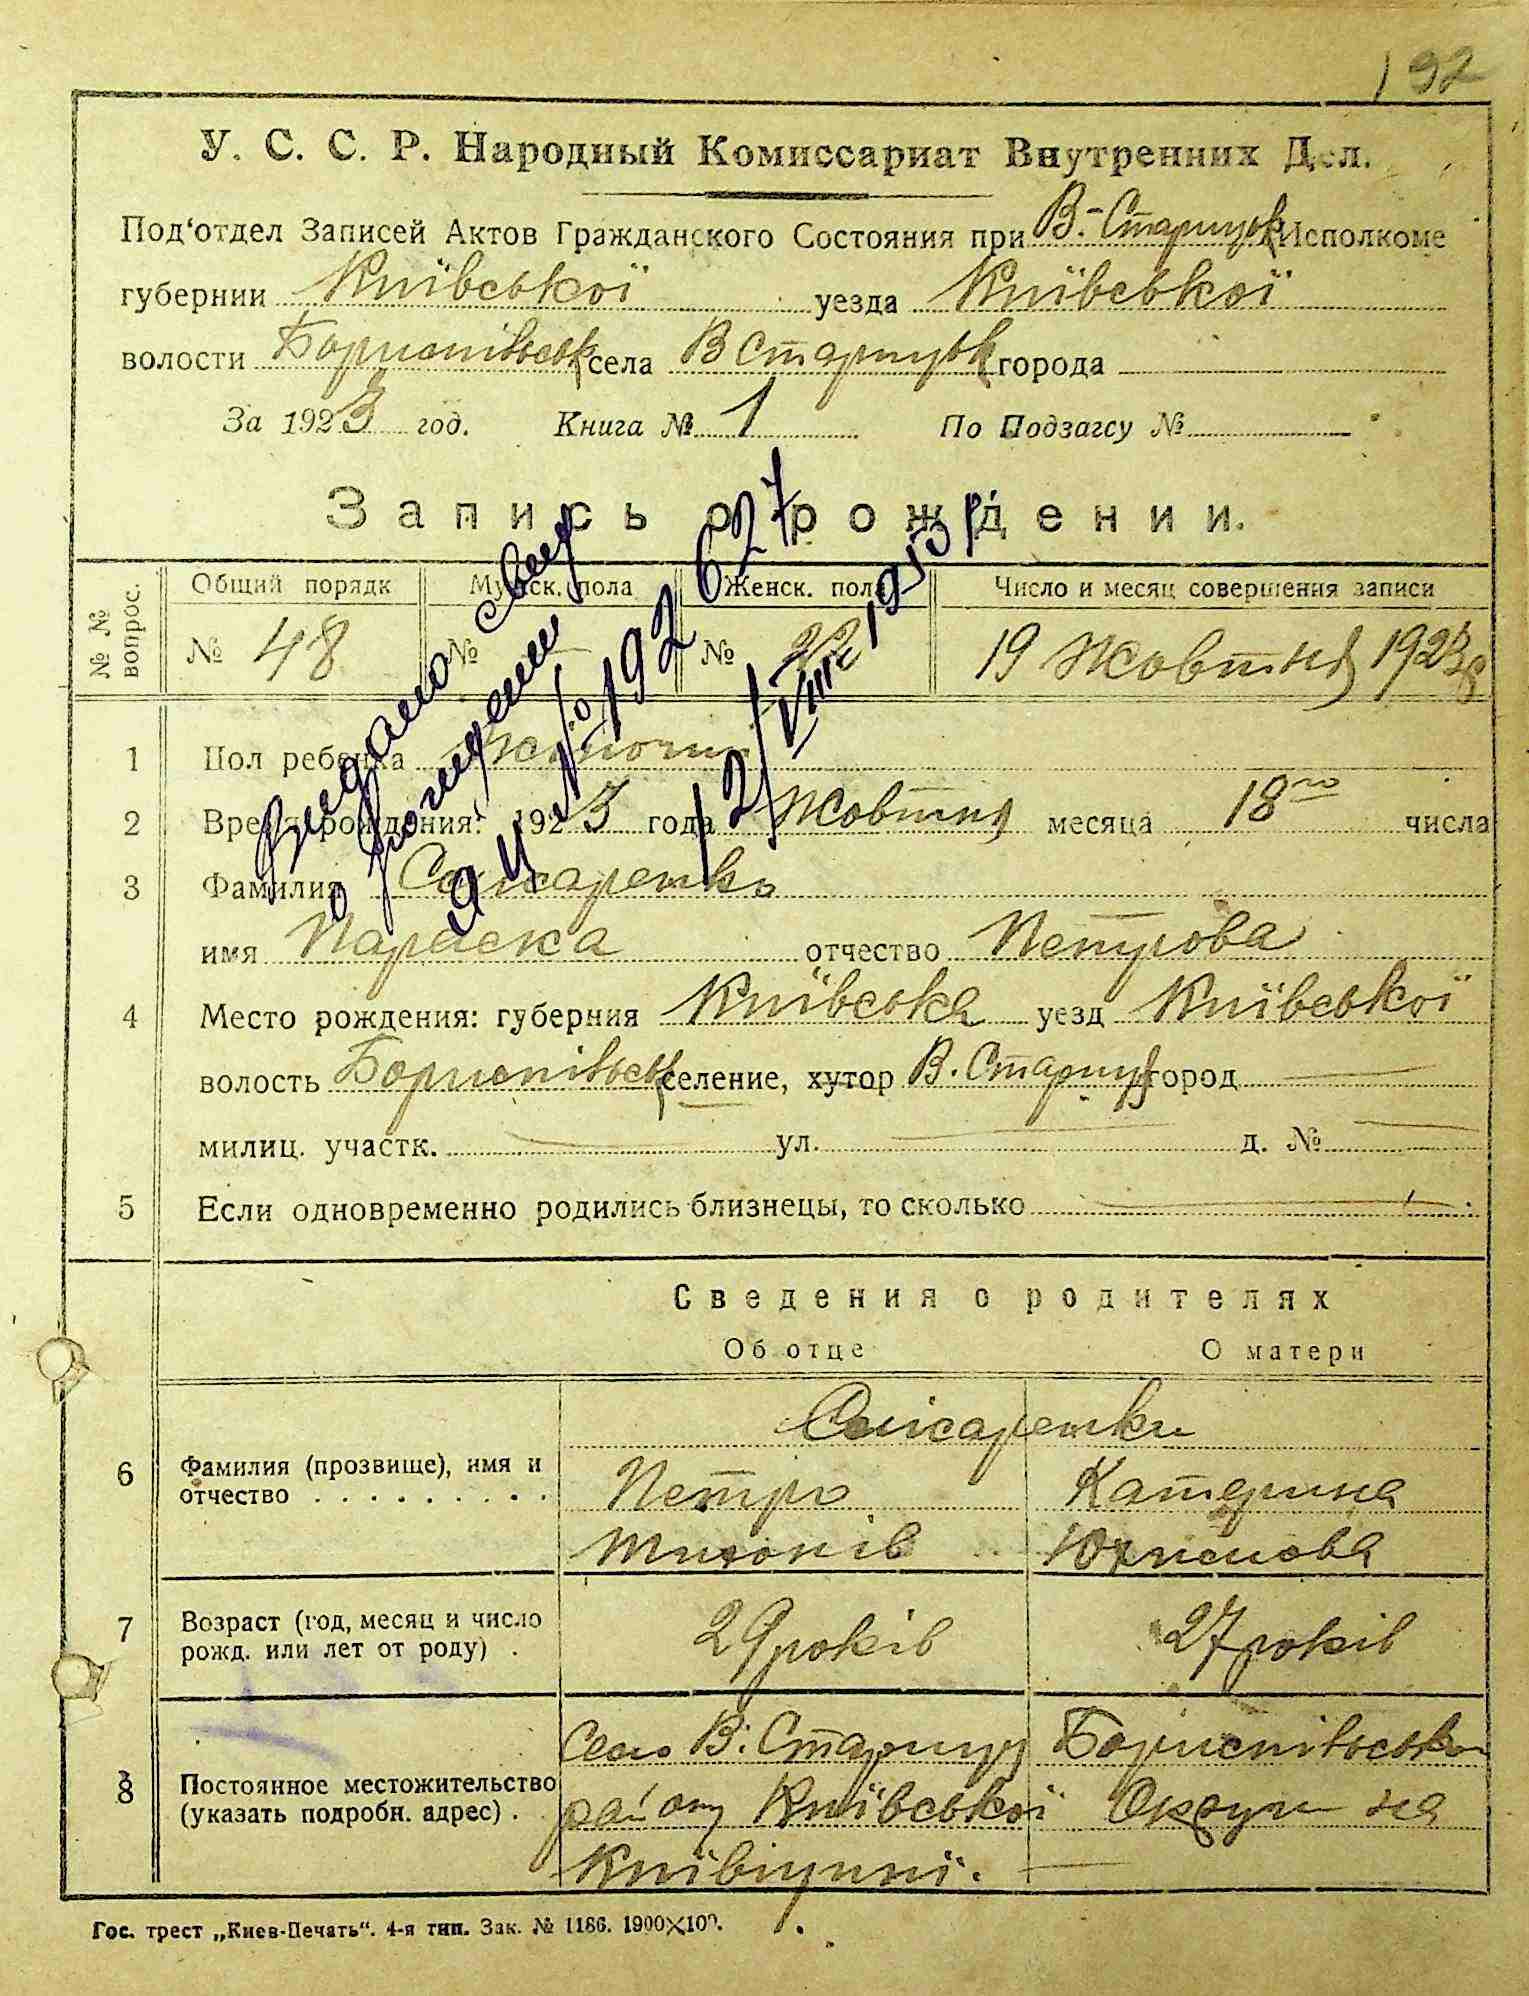 192
У. С. С. Р. Народный Комиссариат Внутренних Дел.
Под'отдел Записей Актов Гражданского Состояния при В-Старицьк Исполкоме
губернии Київської уезда Київської
волости Бориспільськ села В Старицьк города
За 1923 год. Книга № 1 По Подзагсу №
Запись о рождении.
№ № вопрос. Общий порядк Мужск. пола Женск. пола Число и месяц совершения записи
№ 48 № — № 22 19 Жовтня 1923
Видано свид
о рождении
ЯЦ № 192627
12/VIII 1951 р
1 Пол ребенка Жіночий
2 Время рождения: 1923 года Жовтня месяца 18го числа
3 Фамилия Слісаренко
имя Параска отчество Петрова
4 Место рождения: губерния Київська уезд Київської
волость Бориспільськ селение, хутор В. Стариця город —
милиц. участк. — ул. — д. № —
5 Если одновременно родились близнецы, то сколько —
Сведения о родителях
Об отце О матери
Слісаренки
6 Фамилия (прозвище), имя и отчество . . . . . . . . . . Петро Катерина
7 Возраст (год, месяц и число рожд. или лет от роду) . 29 років 27 років
8 Постоянное местожительство (указать подробн. адрес) . Село В. Стариця Бориспільськ
району Київської Округи на
Київщині.
Гос. трест „Киев-Печать“. 4-я тип. Зак. № 1186. 1900×100.